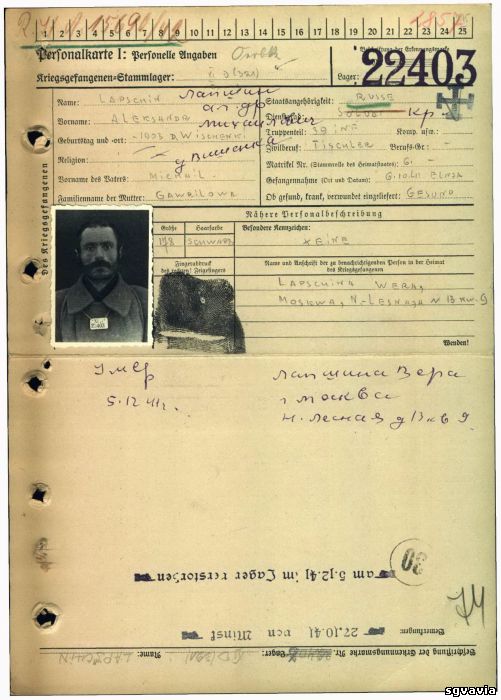 1 2 3 4 5 6 7 8 9 10 11 12 13 14 15 16 17 18 19 20 21 22 23 24 25
Personalkarte I: Personelle Angaben
Beschriftung der Erkennungsmarke
Kriegsgefangenen-Stammlager: D (321)
Lager:
22403
Des Kriegsgefangenen
Name: LAPSCHIN Лапшин
Staatsangehörigkeit: RUSSE
Vorname: ALEKSANDR
Михайлович
Dienstgrad: кр
Truppenteil: 39 INF Komp. usw.:
Geburtstag und -ort: -1003 D. WISCHENK.
Zivilberuf: Tischler Berufs-Gr.:
Religion: д Вишенка
Matrikel Nr. (Stammrolle des Heimatstaates) 6-
Vorname des Vaters: MICHAIL
Gefangennahme (Ort und Datum): 6.10.41
Familienname der Mutter: GAWRILOWA
Ob gesund, krank, verwundet eingeliefert: GESUND
Nähere Personalbeschreibung
Größe Haarfarbe Besondere Kennzeichen:
SCHWARZ KEINE
Fingerabdruck
des rechten! Zeigefingers
Name und Anschrift der zu benachrichtigenden Person in der Heimat
des Kriegsgefangenen
LAPSCHINA WERA,
MOSKWA, N-LESNAJA N 13 KW. 9
Wenden!
Умер
5.12 41 г.
Лапшина Вера
г Москва
н. Лесная д 13 кв 9.
30
am 5.12.41 im Lager verstorben
74
Bemerkungen: 27.10.41 von Minsk
Beschriftung der Erkennungsmarke Nr. Lager: Name: LAPSCHIN
sgvavia